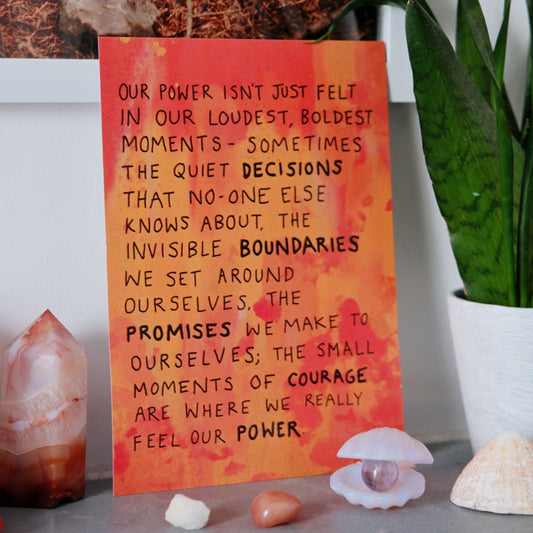 OUR POWER ISN'T JUST FELT
IN OUR LOUDEST, BOLDEST
MOMENTS - SOMETIMES
THE QUIET DECISIONS
THAT NO-ONE ELSE
KNOWS ABOUT, THE
INVISIBLE BOUNDARIES
WE SET AROUND
OURSELVES, THE
PROMISES WE MAKE TO
OURSELVES; THE SMALL
MOMENTS OF COURAGE
ARE WHERE WE REALLY
FEEL OUR POWER.